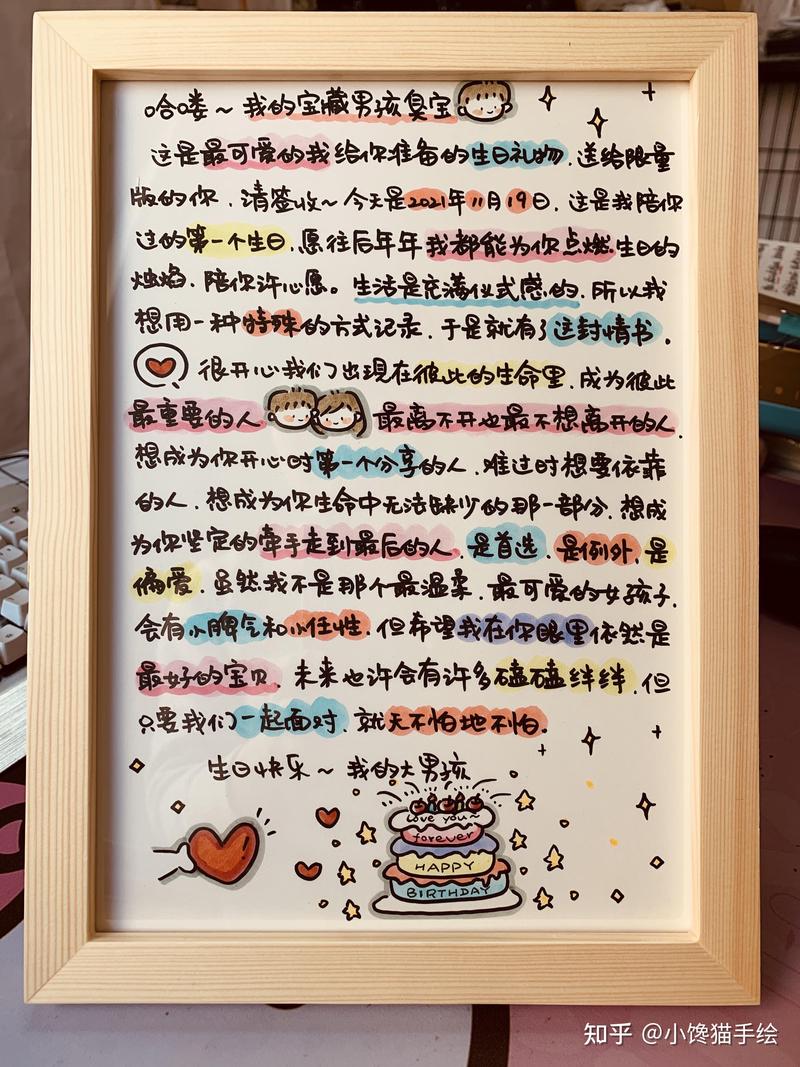 哈喽~我的宝藏男孩臭宝
这是最可爱的我给你准备的生日礼物，送给限量
版的你，请签收~今天是2021年11月19日，这是我陪你
过的第一个生日，愿往后年年我都能为你点燃生日的
烛焰，陪你许心愿。生活是充满仪式感的，所以我
想用一种特殊的方式记录，于是就有了这封情书。
很开心我们出现在彼此的生命里，成为彼此
最重要的人 最离不开也最不想离开的人，
想成为你开心时第一个分享的人，难过时想要依靠
的人，想成为你生命中无法缺少的那一部分，想成
为你坚定的牵手走到最后的人，是首选，是例外，是
偏爱，虽然我不是那个最温柔，最可爱的女孩子，
会有小脾气和小任性，但希望我在你眼里依然是
最好的宝贝，未来也许会有许多磕磕绊绊，但
只要我们一起面对，就天不怕地不怕。
生日快乐~我的大男孩
love you~
forever
HAPPY
BIRTHDAY
知乎 @小馋猫手绘